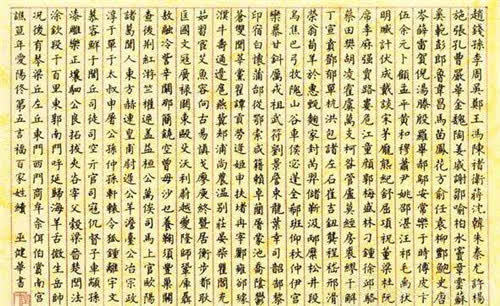 趙錢孫李周吳鄭王馮陳褚衛蔣沈韓楊朱秦尤許
施張孔曹嚴華金魏陶姜戚謝鄒喻柏水竇章雲蘇
奚范彭郎魯韋昌馬苗鳳花方俞任袁柳酆鮑史唐
岑薛雷賀倪湯滕殷羅畢郝鄔安常樂于時傅皮卞
伍余元卜顧孟平黃和穆蕭尹姚邵湛汪祁毛禹狄
明臧計伏成戴談宋茅龐熊紀舒屈項祝董梁杜阮
席季麻強賈路婁危江童顏郭梅盛林刁鍾徐邱駱
蔡田樊胡凌霍虞萬支柯昝管盧莫經房裘繆干解
丁宣賁鄧郁單杭洪包諸左石崔吉鈕龔程嵇邢滑
榮翁荀羊於惠甄麴家封芮羿儲靳汲邴糜松井段
烏焦巴弓牧隗山谷車侯宓蓬全郗班仰秋仲伊宮
欒暴甘鈄厲戎祖武符劉景詹束龍葉幸司韶郜黎
印宿白懷蒲邰從鄂索咸籍賴卓藺屠蒙池喬陰鬱
蒼雙聞莘黨翟譚貢勞逄姬申扶堵冉宰酈雍郤璩
濮牛壽通邊扈燕冀郟浦尚農溫別莊晏柴瞿閻充
茹習宦艾魚容向古易慎戈廖庾終暨居衡步都耿
匡國文寇廣祿闕東歐殳沃利蔚越夔隆師鞏厙聶
敖融冷訾辛闞那簡饒空曾毋沙乜養鞠須豐巢關
查後荊紅游竺權逯蓋益桓公万俟司馬上官歐陽
諸葛聞人東方赫連皇甫尉遲公羊澹臺公冶宗政
淳于單于太叔申屠公孫仲孫軒轅令狐鍾離宇文
慕容鮮于閭丘司徒司空亓官司寇仉督子車顓孫
漆雕樂正壤駟公良拓跋夾谷宰父穀梁晉楚閆法
涂欽段干百里東郭南門呼延歸海羊舌微生岳帥
況後有琴梁丘左丘東門西門商牟佘佴伯賞南宮
譙笪年愛陽佟第五言福百家姓續 巫健華書